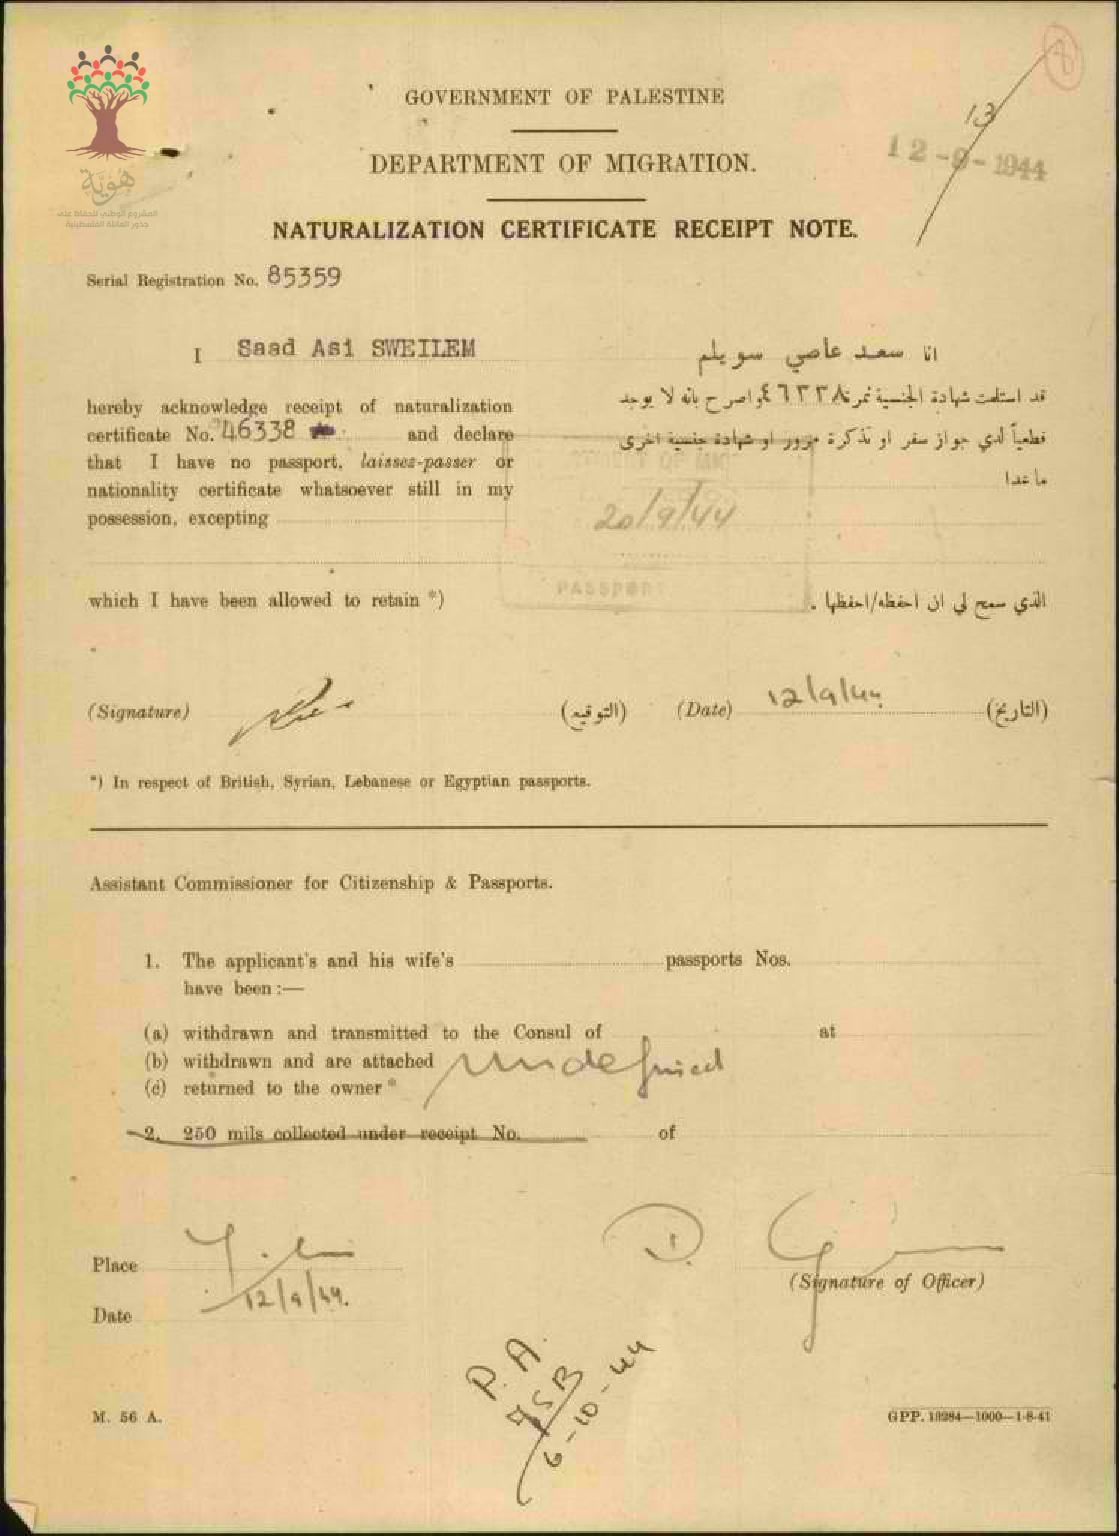 هُوِيَّة
المشروع الوطني للحفاظ على
جذور العائلة الفلسطينية
8
GOVERNMENT OF PALESTINE
13
12-9-1944
DEPARTMENT OF MIGRATION.
NATURALIZATION CERTIFICATE RECEIPT NOTE.
Serial Registration No. 85359
I Saad Asi SWEILEM
انا سعد عاصي سويلم
hereby acknowledge receipt of naturalization
certificate No. 46338 and declare
that I have no passport, laissez-passer or
nationality certificate whatsoever still in my
possession, excepting
قد استلمت شهادة الجنسية نمرة ٤٦٣٣٨ واصرح بانه لا يوجد
قطعياً لدي جواز سفر او تذكرة مرور او شهادة جنسية اخرى
ما عدا
20/9/44
PASSPORT
which I have been allowed to retain *)
الذي سمح لي ان احفظه/احفظها .
(Signature) (التوقيع) (Date) 12/9/44 (التاريخ)
*) In respect of British, Syrian, Lebanese or Egyptian passports.
Assistant Commissioner for Citizenship & Passports.
1. The applicant's and his wife's passports Nos.
have been :—
(a) withdrawn and transmitted to the Consul of at
(b) withdrawn and are attached
(c) returned to the owner *
undefined
2. 250 mils collected under receipt No. of
Place
Date 12/9/44.
D.
(Signature of Officer)
P.A.
6-10-44
M. 56 A.
GPP. 10284—1000—1-8-41